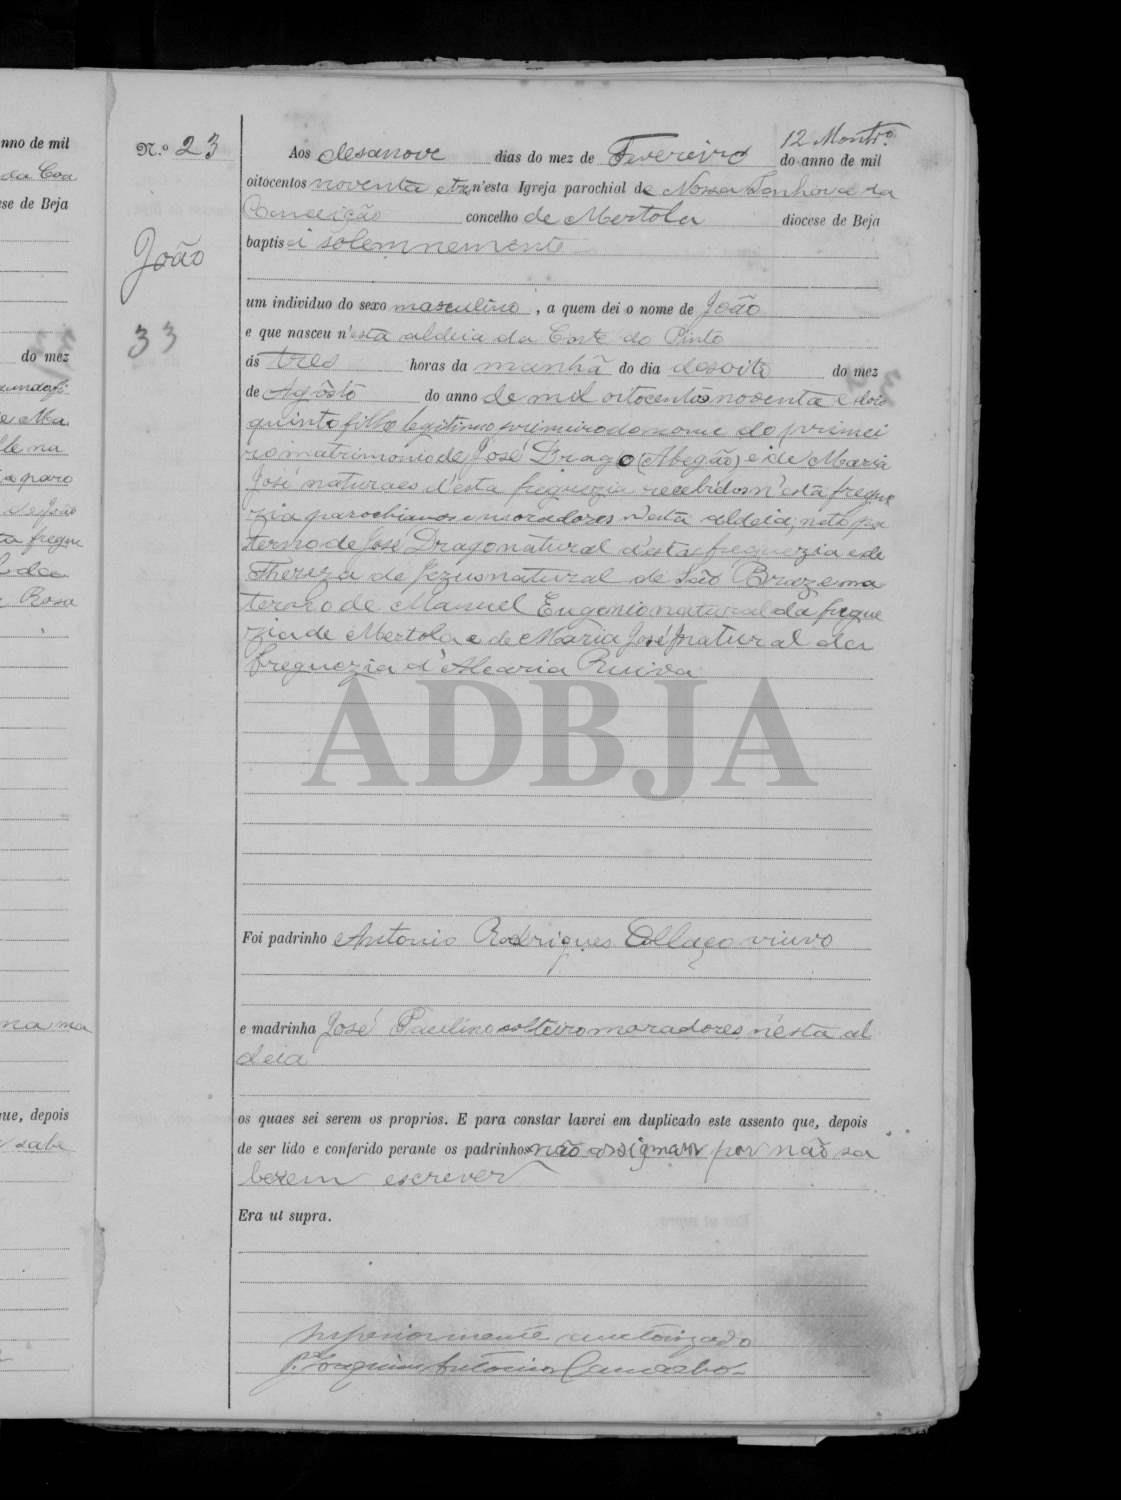 nno de mil
ese de Beja
do mez
a paro
ta fregue
Rosa
na ma
que, depois
sabe
N.º 23
João
33
12 Montr.º
Aos desanove dias do mez de Fevereiro do anno de mil
oitocentos noventa e tres n'esta Igreja parochial de Nossa Senhora da
Conceição concelho de Mertola diocese de Beja
baptisei solemnemente
um individuo do sexo masculino, a quem dei o nome de João
e que nasceu n'esta aldeia da Corte do Pinto
ás tres horas da manhã do dia desoito do mez
de Agôsto do anno de mil oitocentos noventa e dois
quinto filho legitimo e primeiro do nome do primei
ro matrimonio de José Drago (Abegão) e de Maria
José naturaes d'esta freguezia recebidos n'esta fregue
zia parochianos e moradores n'esta aldeia; neto pa
terno de José Drago natural d'esta freguezia e de
Thereza de Jezus natural de São Braz e ma
terno de Manuel Eugenio natural da fregue
zia de Mertola e de Maria José natural da
freguezia d'Alcaria Ruiva
ADBJA
Foi padrinho Antonio Rodrigues Collaço viuvo
e madrinha José Paulino solteiro moradores n'esta al
deia
os quaes sei serem os proprios. E para constar lavrei em duplicado este assento que, depois
de ser lido e conferido perante os padrinhos não assignam por não sa
berem escrever
Era ut supra.
superiormente auctorizado
P.e Joaquim Antonio